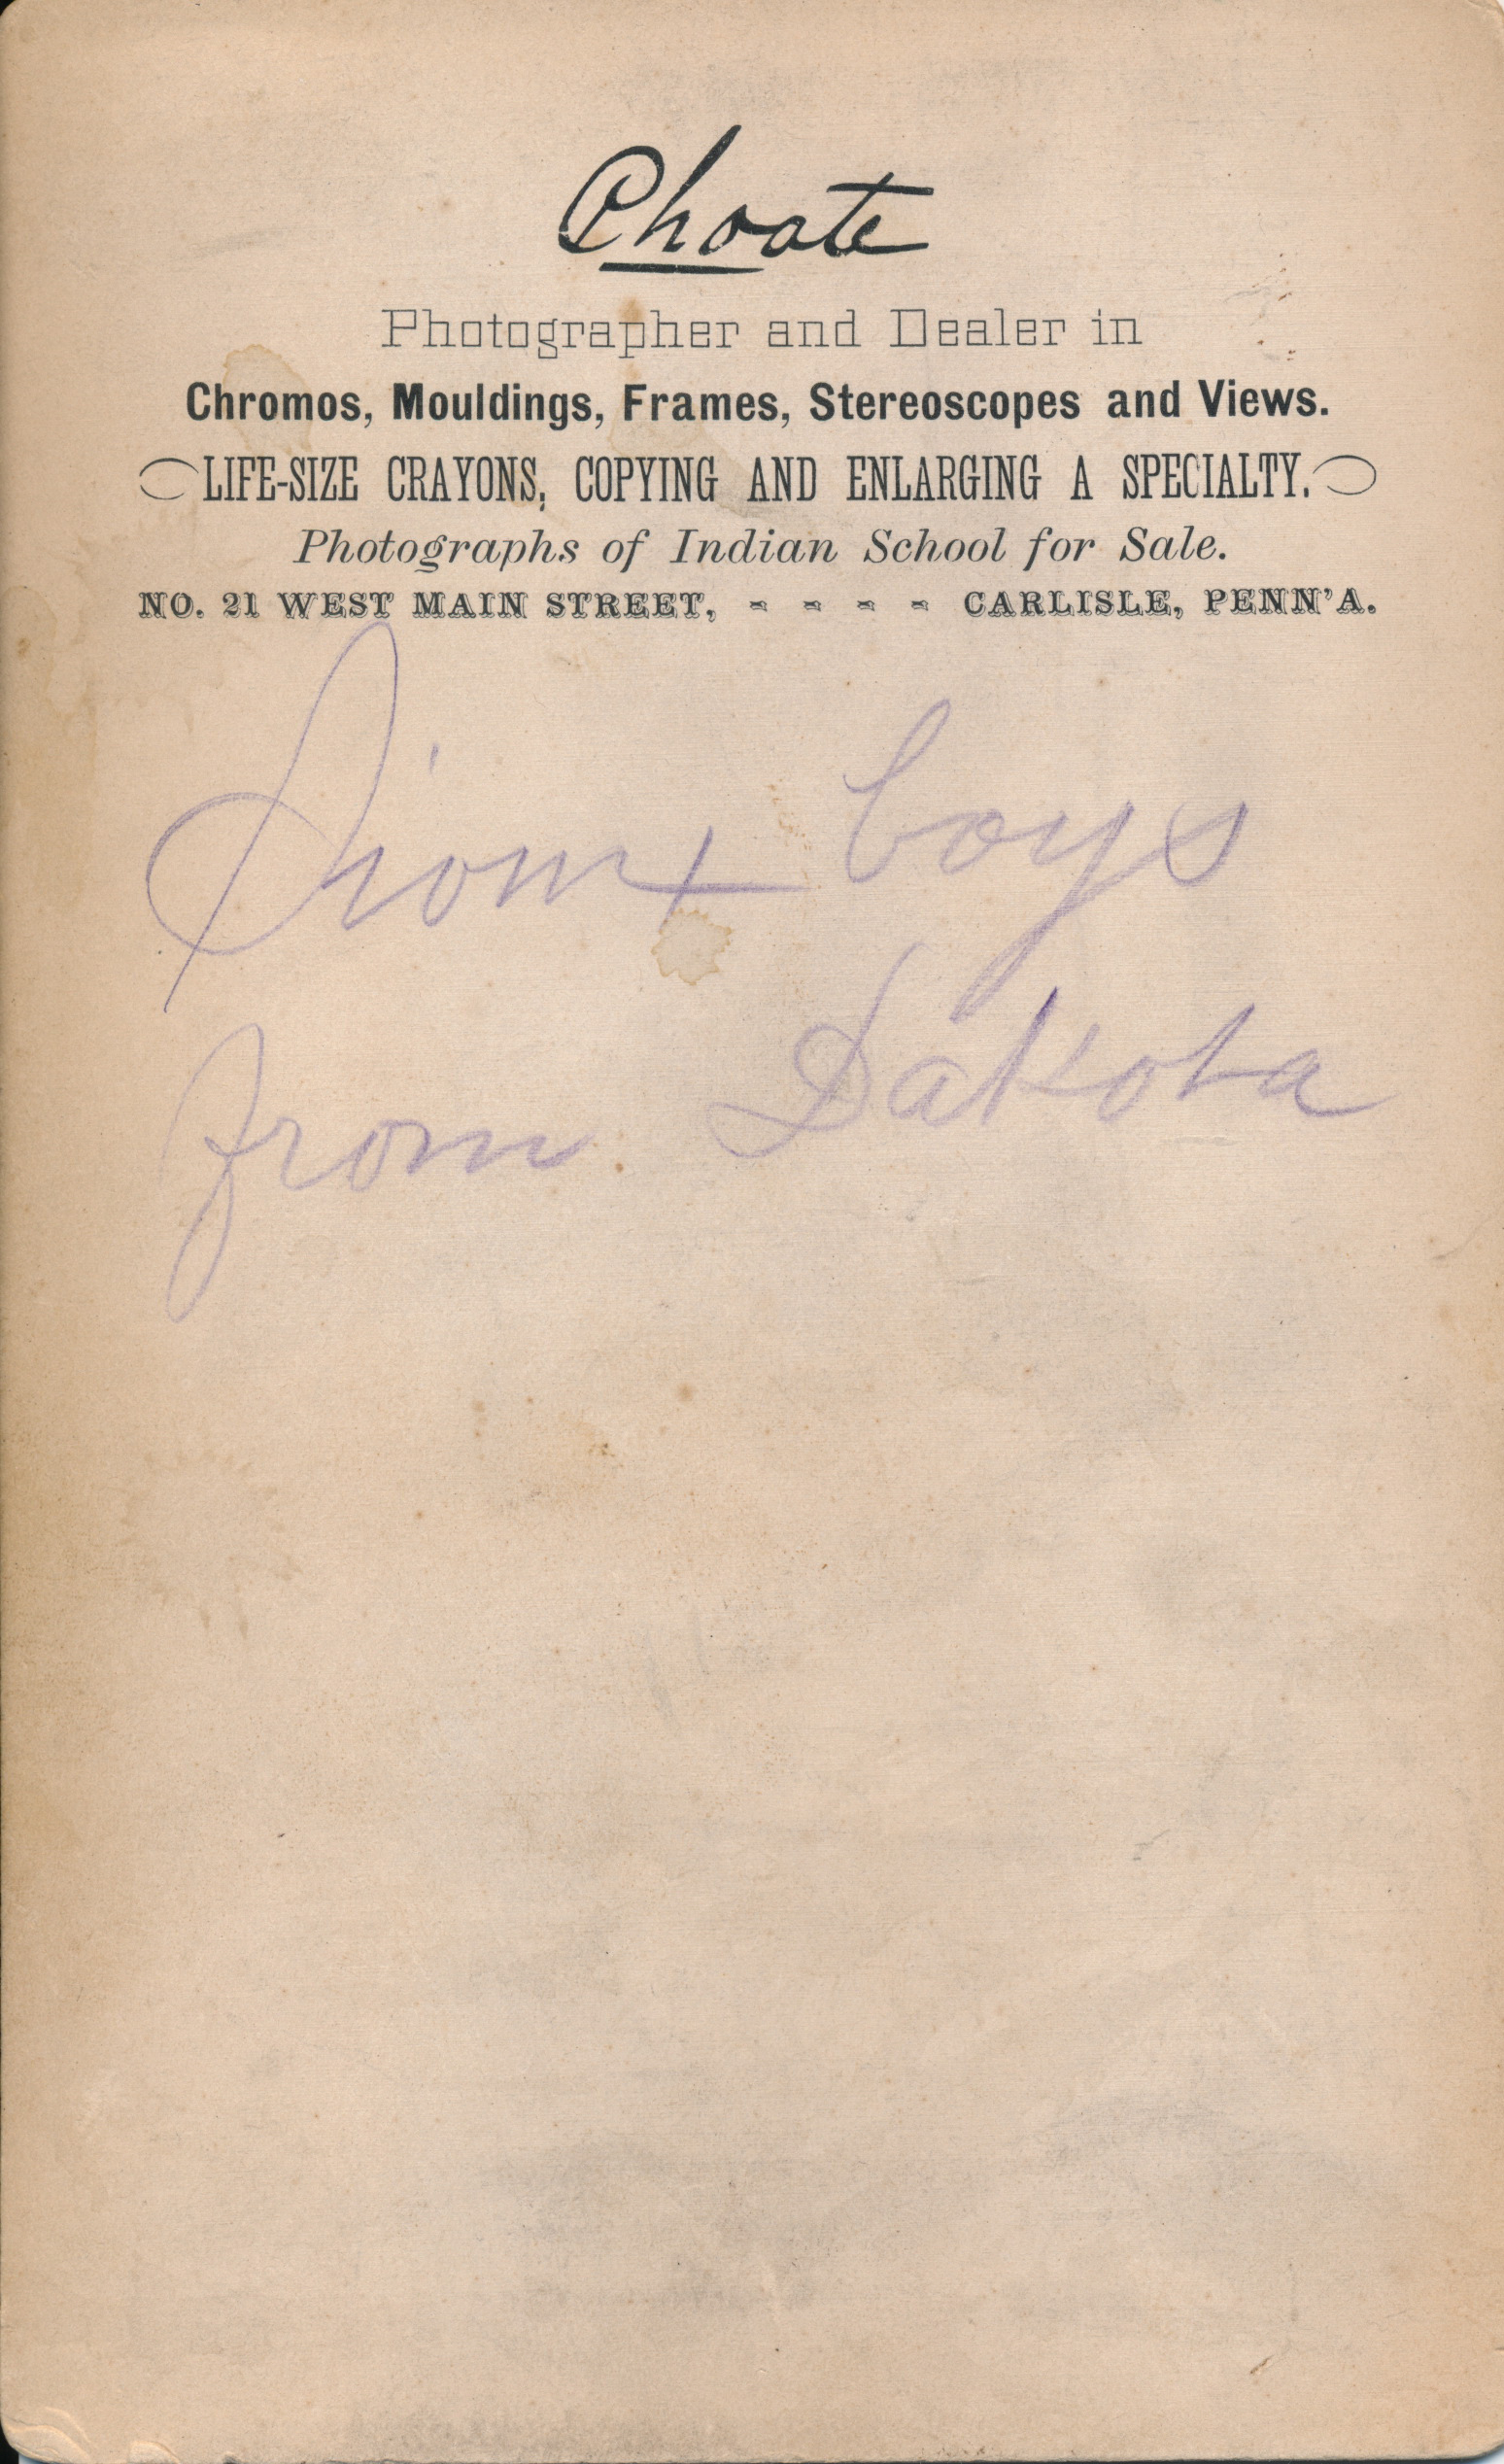 Choate
Photographer and Dealer in
Chromos, Mouldings, Frames, Stereoscopes and Views.
LIFE-SIZE CRAYONS, COPYING AND ENLARGING A SPECIALTY.
Photographs of Indian School for Sale.
NO. 21 WEST MAIN STREET, - - - - CARLISLE, PENN'A.
Sioux boys
from Dakota